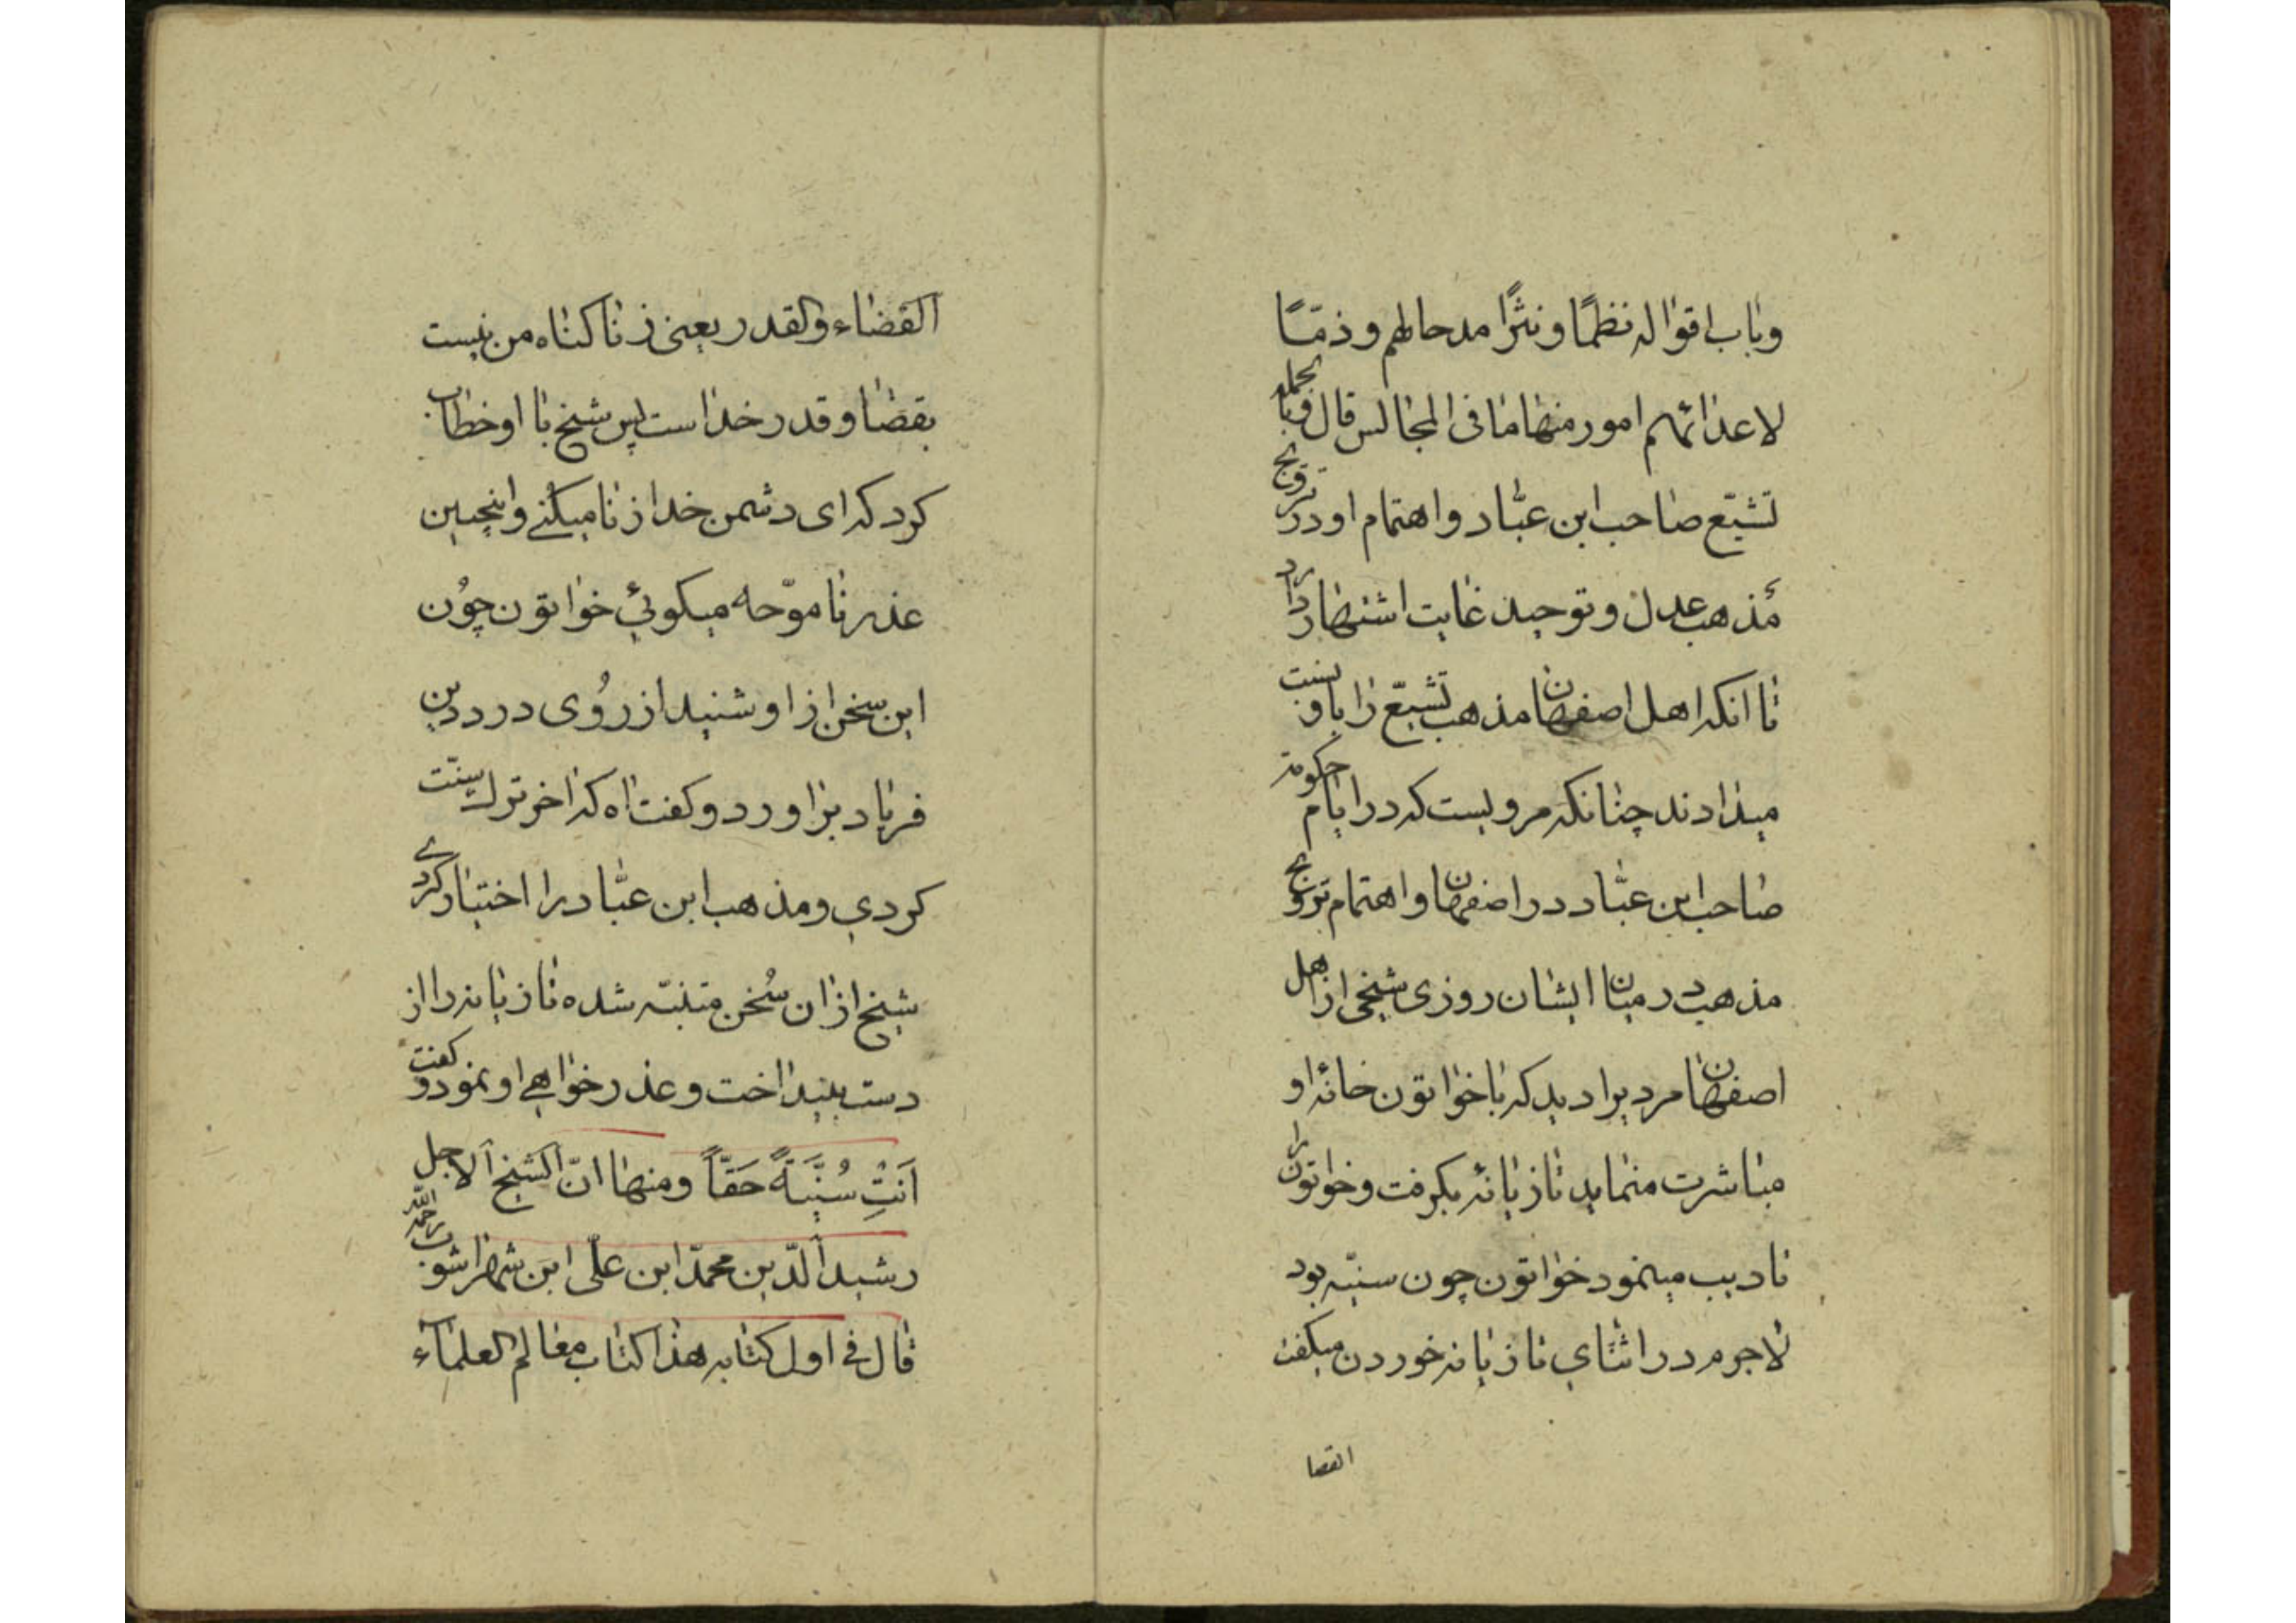 وباب اقواله نظمًا ونثرًا مدحا لهم وذمًّا
لاعدائهم امور منها ما فی المجالس قال وبالجمله
تشیّع صاحب ابن عبّاد واهتمام او در ترویج
مذهب عدل وتوحید غایت اشتهار دارد
تا انکه اهل اصفهان مذهب تشیّع را باو نسبت
میدادند چنانکه مرویست که در ایام حکومة
صاحب ابن عبّاد در اصفهان واهتمام ترویج
مذهب در میان ایشان روزی شیخی از اهل
اصفهان مردیرا دید که با خواتون خانهٔ او
مباشرت منماید تازیانهٔ بکرفت وخواتون را
تادیب مینمود خواتون چون سنیّه بود
لاجرم در اثنای تازیانه خوردن میکفت
القضا
القضاء والقدر یعنی زنا کناه من نیست
بقضا وقدر خداست پس شیخ با او خطاب
کرد که ای دشمن خدا زنا میکنے واینچنین
عذر نا موّحه میکوئی خواتون چوُن
این سخن از او شنید از رُوی درد دین
فریاد براورد وکفت اه که اخر ترک سنّت
کردی ومذهب ابن عبّاد را اختیار کردے
شیخ ازان سُخن متنبّه شده تازیانه را از
دست بینداخت وعذر خواهے او نمود وکفت
اَنتِ سُنّیَّةً حَقّاً ومنها انّ الشیخ الاجل
رشید الدّین محمدّ ابن علّی ابن شهراشوب رحمه الله
قال فے اول کتابه هذا کتاب معالم العلماء